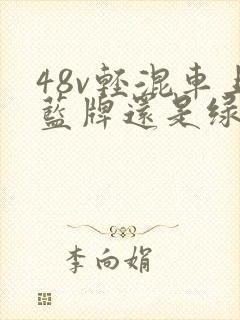 48v輕混車上
藍牌還是綠
李向娟